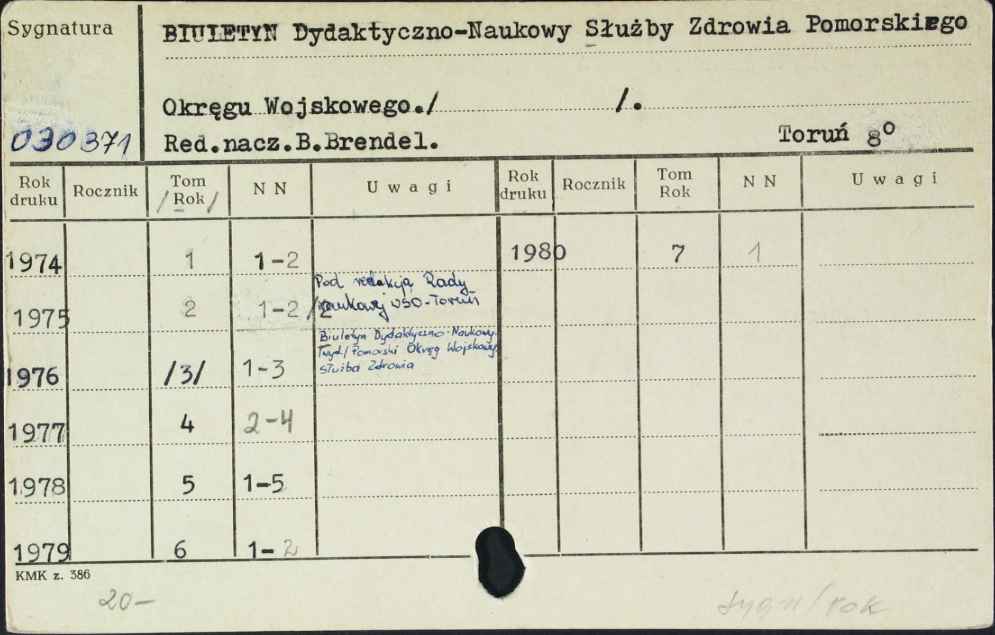 Sygnatura
BIULETYN Dydaktyczno-Naukowy Służby Zdrowia Pomorskiego
Okręgu Wojskowego./ /.
030371
Red.nacz.B.Brendel. Toruń 8⁰
Rok druku Rocznik Tom /Rok/ N N Uwagi Rok druku Rocznik Tom Rok N N Uwagi
1974 1 1-2 1980 7 1
Pod redakcją Rady
1975 2 1-2 /2 naukowej WSO-Toruń
Biuletyn Dydaktyczno-Naukowy.
Wyd./Pomorski Okręg Wojskowy
1976 /3/ 1-3 służba Zdrowia
1977 4 2-4
1978 5 1-5
1979 6 1-2
KMK z. 386
20-
sygn/rok